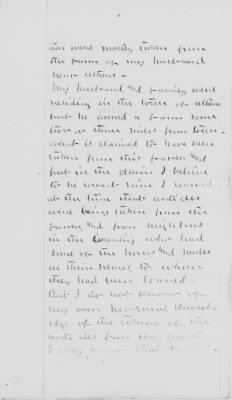 this were mostly taken from
the farm of my husband
near Athens -
My husband and family were
residing in the town of Athens
but he owned a farm some
two or three miles from town.
what is claimed to have been
taken from this farm and
put in the claim I believe
to be correct - since I learned
at the time that articles
were being taken from the
farm, and from neighbors
in the Country who had
some of the horses and mules
at their homes, to where
they had been loaned -
But I do not know of
my own personal knowl-
edge of the taking of the
articles from the
I only know that